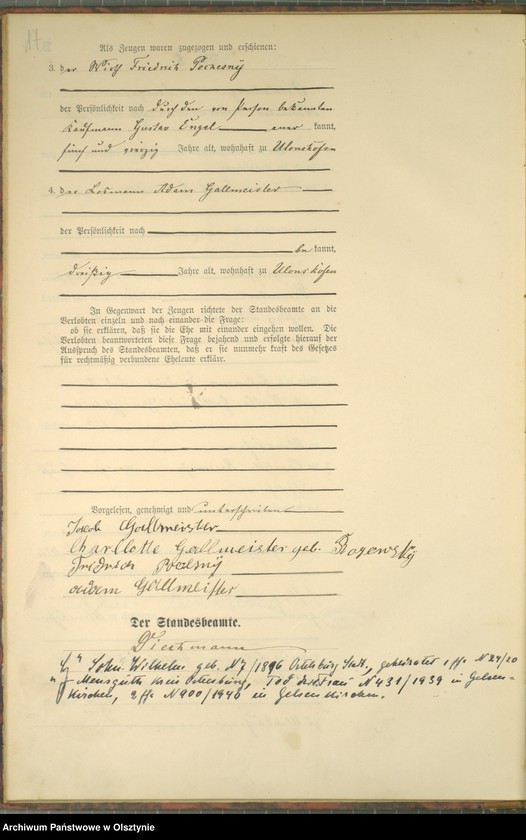 Als Zeugen waren zugezogen und erschienen:
3. der Wirth Friedrich Poczesny
der Persönlichkeit nach durch den von Person bekannten
Kaufmann Gustav Engel aner kannt,
fünf und vierzig Jahre alt, wohnhaft zu Ulonskofen
4. der Losmann Adam Gallmeister
der Persönlichkeit nach
be kannt,
dreißig Jahre alt, wohnhaft zu Ulonskofen
In Gegenwart der Zeugen richtete der Standesbeamte an die
Verlobten einzeln und nach einander die Frage:
ob sie erklären, daß sie die Ehe mit einander eingehen wollen. Die
Verlobten beantworteten diese Frage bejahend und erfolgte hierauf der
Ausspruch des Standesbeamten, daß er sie nunmehr kraft des Gesetzes
für rechtmäßig verbundene Eheleute erkläre.
Vorgelesen, genehmigt und unterschrieben
Jacob Gallmeister
Charllotte Gallmeister geb.
Friedrich
adam Gallmeister
Der Standesbeamte.
"Sohn: Wilhelm geb. N 7/1896 Ortelsburg Stadt, geheiratet N 24/20
" Mensguth Kreis Ortelsburg, Tod N 431/1939 in Gelsen-
kirchen, N 900/1940 in Gelsenkirchen.
Archiwum Państwowe w Olsztynie